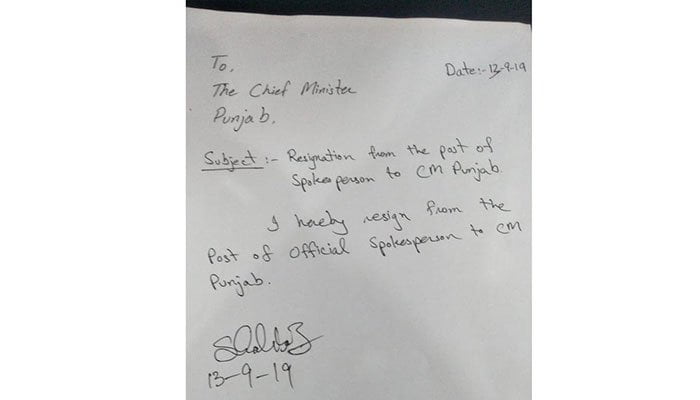 To,
Date:- 13-9-19
The Chief Minister
Punjab.
Subject :- Resignation from the post of
Spokesperson to CM Punjab.
I hereby resign from the
Post of Official Spokesperson to CM
Punjab.
13-9-19